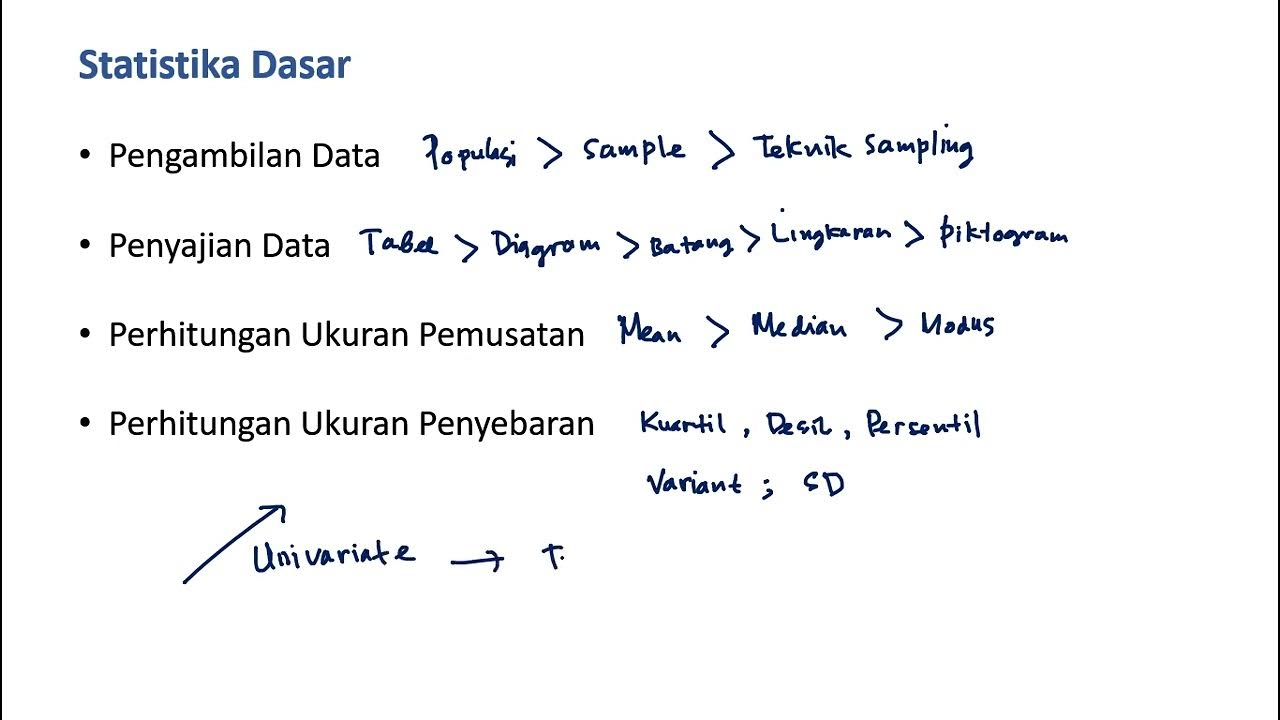 Statistika Dasar
• Pengambilan Data Populasi > Sample > Teknik Sampling
• Penyajian Data Tabel > Diagram > Batang > Lingkaran > Piktogram
• Perhitungan Ukuran Pemusatan Mean > Median > Modus
• Perhitungan Ukuran Penyebaran Kuartil, Desil, Persentil
Variant; SD
Univariate → t